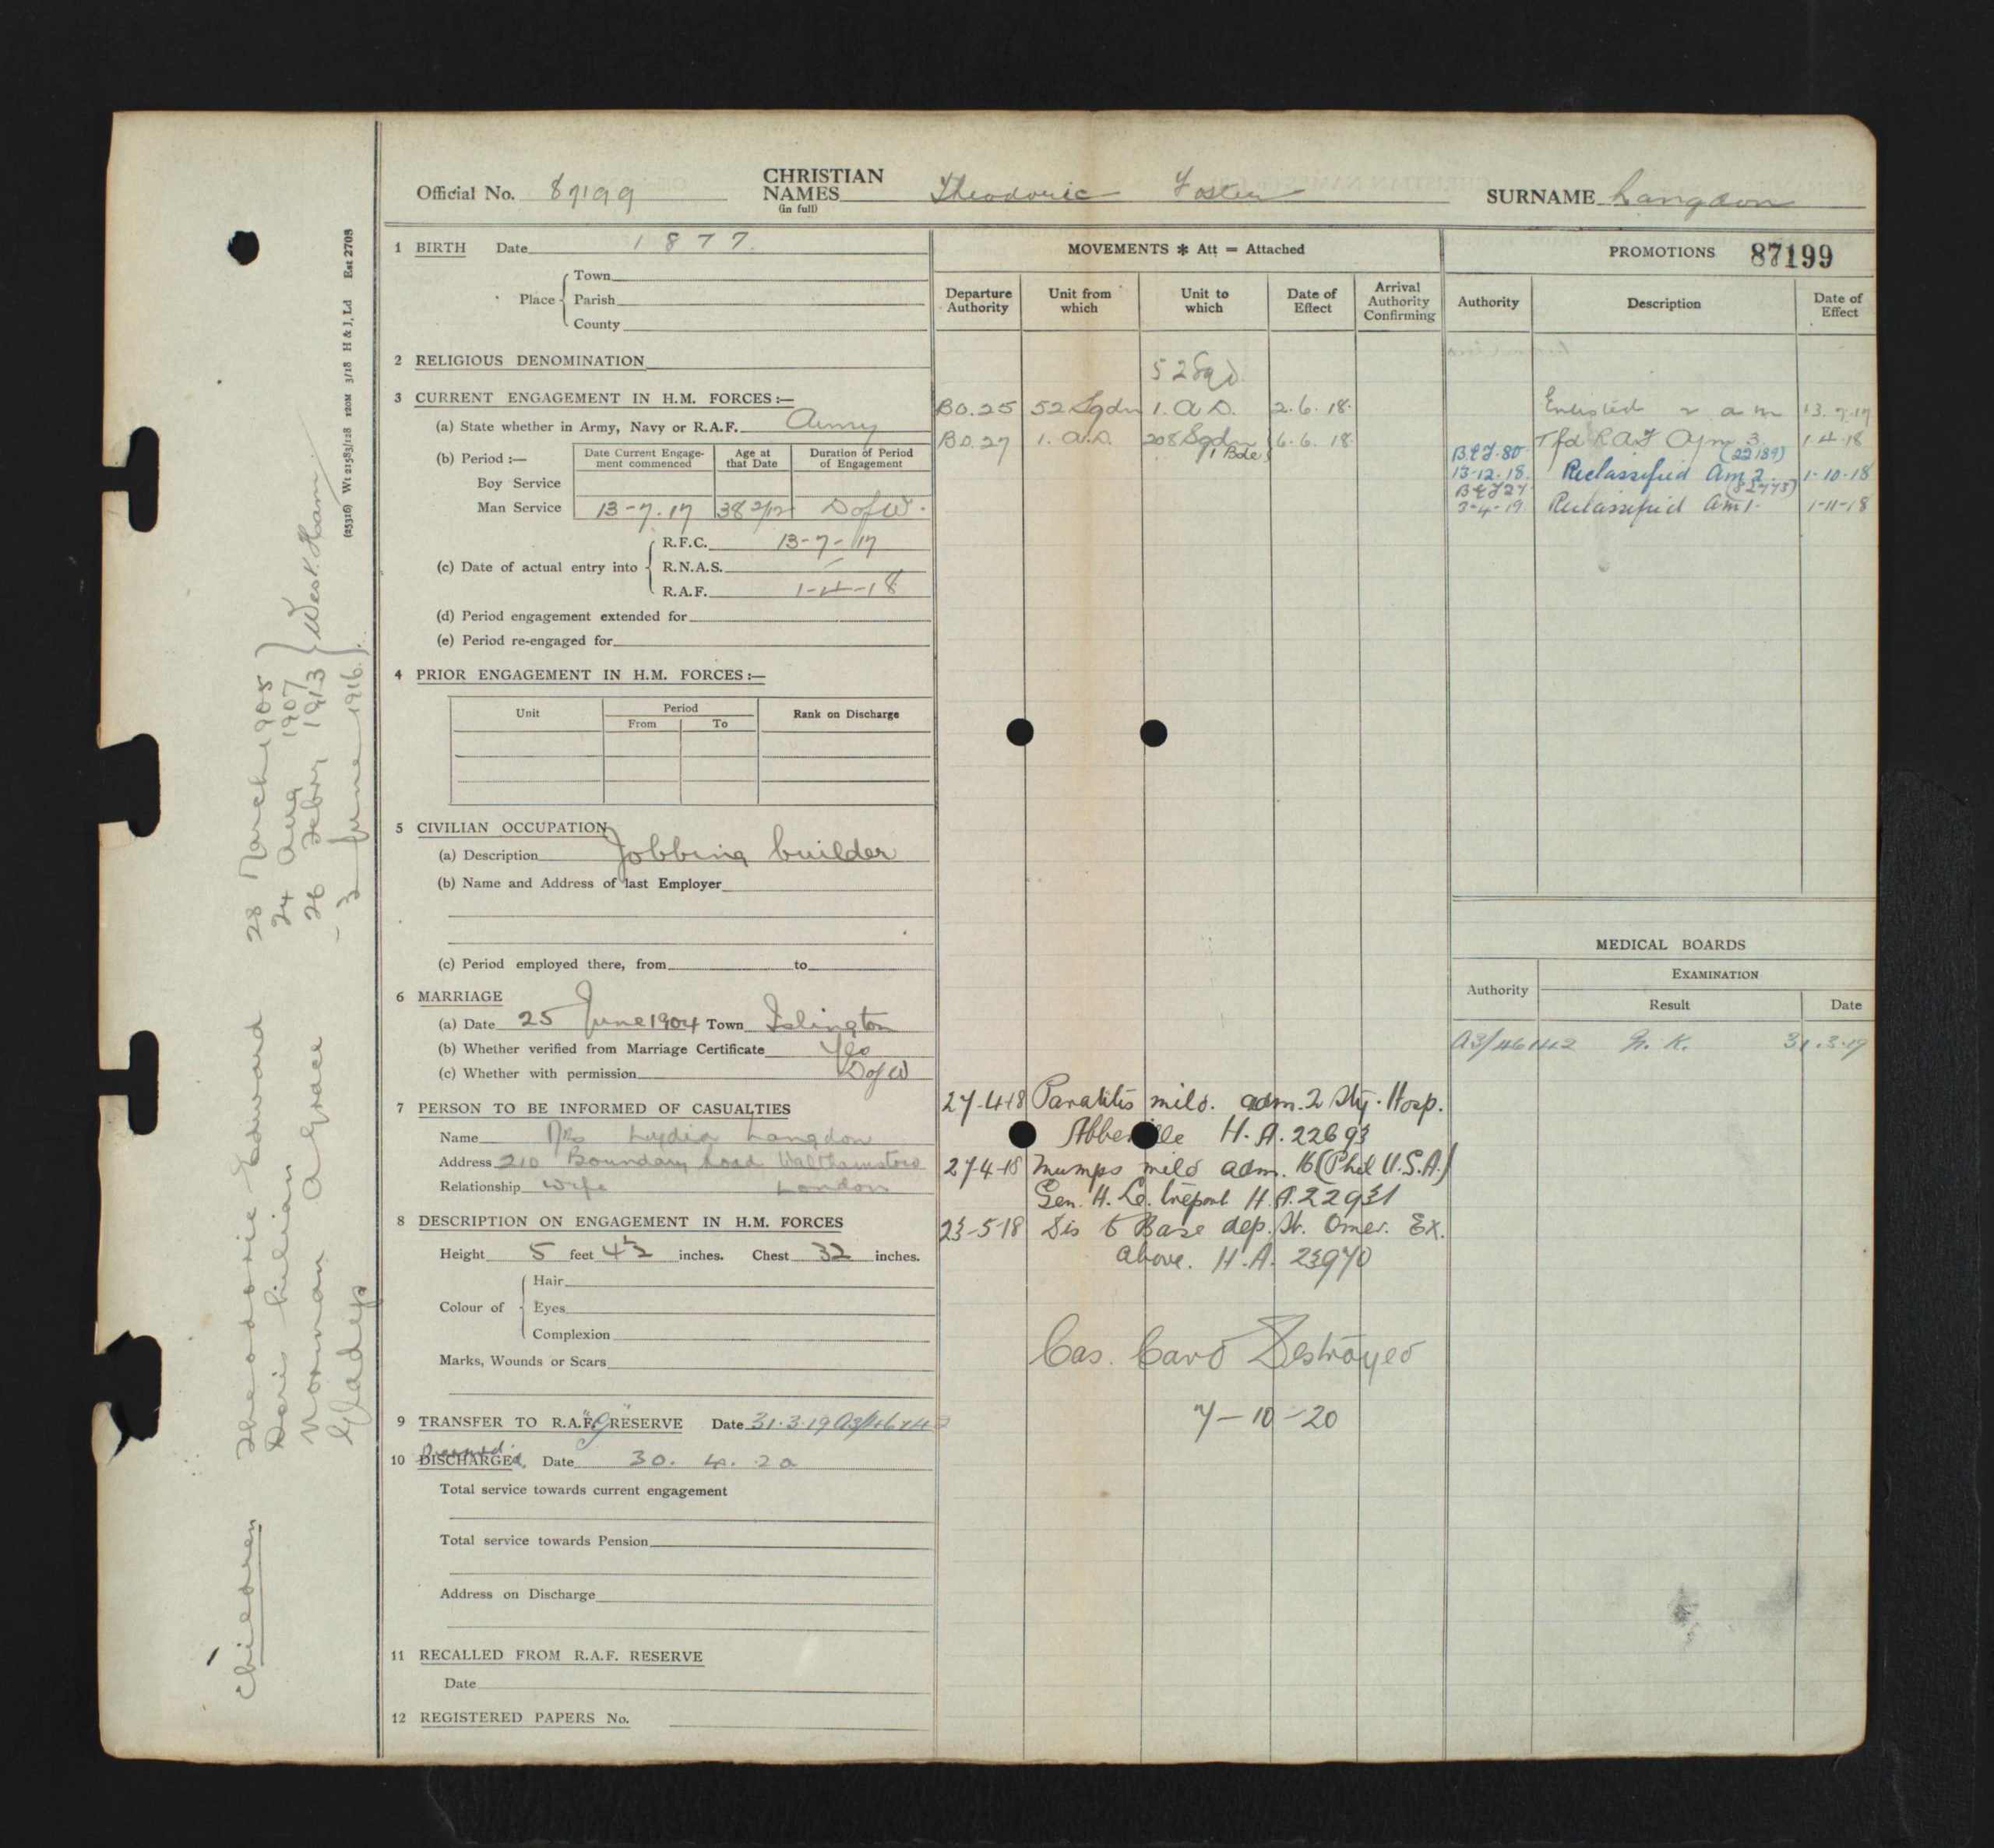 Official No. 87199 CHRISTIAN NAMES (in full) Theodoric Foster SURNAME Langdon
1 BIRTH Date 1877.
Place
Town
Parish
County
2 RELIGIOUS DENOMINATION
3 CURRENT ENGAGEMENT IN H.M. FORCES:—
(a) State whether in Army, Navy or R.A.F. Army
(b) Period :— Date Current Engagement commenced Age at that Date Duration of Period of Engagement
Boy Service
Man Service 13-7-17 38 2/12 D of W.
(c) Date of actual entry into
R.F.C. 13-7-17
R.N.A.S.
R.A.F. 1-4-18
(d) Period engagement extended for
(e) Period re-engaged for
4 PRIOR ENGAGEMENT IN H.M. FORCES:—
Unit Period Rank on Discharge
From To
5 CIVILIAN OCCUPATION
(a) Description Jobbing builder
(b) Name and Address of last Employer
(c) Period employed there, from to
6 MARRIAGE
(a) Date 25 June 1904 Town Islington
(b) Whether verified from Marriage Certificate Yes
(c) Whether with permission D of W
7 PERSON TO BE INFORMED OF CASUALTIES
Name Mrs Lydia Langdon
Address 210 Boundary Road Walthamstow
Relationship Wife London
8 DESCRIPTION ON ENGAGEMENT IN H.M. FORCES
Height 5 feet 4½ inches. Chest 32 inches.
Colour of
Hair
Eyes
Complexion
Marks, Wounds or Scars
9 TRANSFER TO R.A.F. "G" RESERVE Date 31.3.19 A3/46142
10 Deemed DISCHARGEd. Date 30. 4. 20
Total service towards current engagement
Total service towards Pension
Address on Discharge
11 RECALLED FROM R.A.F. RESERVE
Date
12 REGISTERED PAPERS No.
MOVEMENTS * Att = Attached
Departure Authority Unit from which Unit to which Date of Effect Arrival Authority Confirming
52 Sqd.
BO.25 52 Sqdn 1. A.D. 2.6.18.
BO.27 1. A.D. 208 Sqdn 6.6.18.
1 Bde
27-4-18 Parotitis mild. adm. 2 Sty. Hosp.
Abbeville H.A. 22693
27-4-18 Mumps mild adm. 16 (Phil U.S.A.)
Gen. H. Le Treport H.A. 22931
23-5-18 Dis to Base dep. St. Omer. Ex.
above. H.A. 23970
Cas. Card Destroyed
7-10-20
PROMOTIONS 87199
Authority Description Date of Effect
Enlisted 2 a m 13.7.17
Tfd R.A.F. Am 3. 1.4.18
BEF.80 13-12-18. Reclassified Am 2. (22189) 1-10-18
BEF27 3-4-19. Reclassified Am 1. 1-11-18
MEDICAL BOARDS
Authority EXAMINATION
Result Date
A3/46142 G. K. 31.3.19
(25316) Wt 21583/128 120M 3/18 H & J, Ld Est 2708
Children
Theodoric Edward 28 March 1905
Doris Lilian 24 Aug 1907
Norman A Grace 26 Febry 1913
Gladys - 3 June 1916.
West Ham